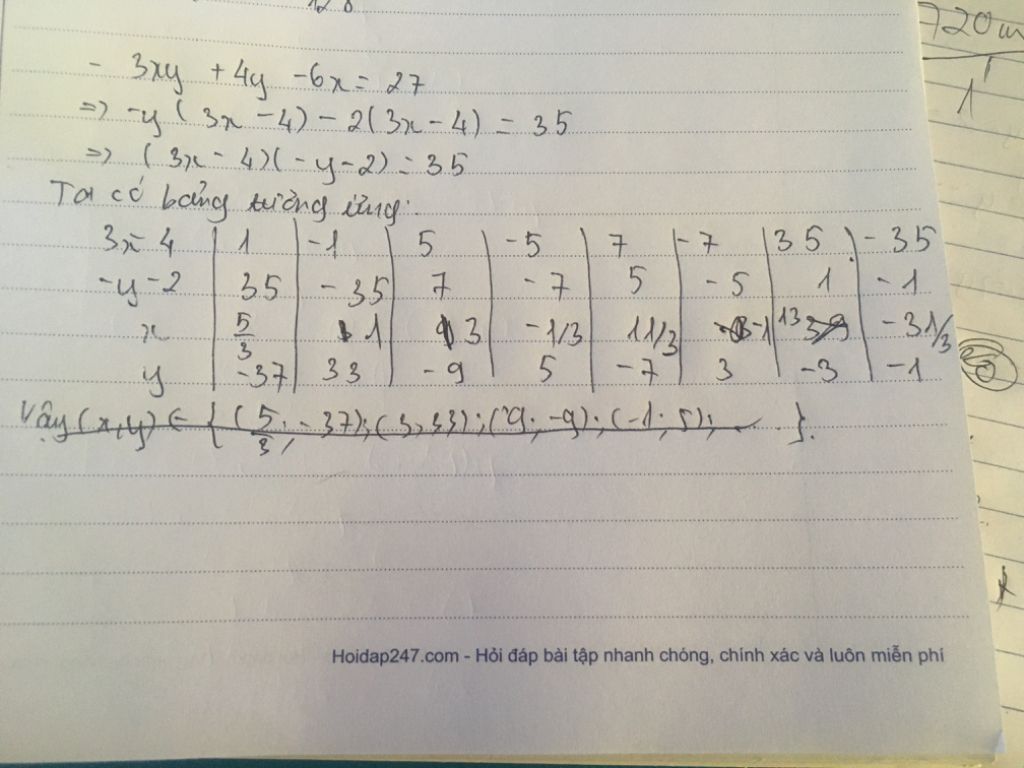 720
1
- 3xy + 4y - 6x = 27
=> -y ( 3x - 4) - 2(3x - 4) = 35
=> (3x - 4)(-y - 2) = 35
Ta có bảng tương ứng:
3x-4 | 1 | -1 | 5 | -5 | 7 | -7 | 35 | -35
-y-2 | 35 | -35 | 7 | -7 | 5 | -5 | 1 | -1
x | 5/3 | 1 | 3 | -1/3 | 11/3 | -1 | 13 | -31/3
y | -37 | 33 | -9 | 5 | -7 | 3 | -3 | -1
Vậy (x,y) ∈ { (5/3; -37); (3,33); (9; -9); (-1; 5); }.
Hoidap247.com - Hỏi đáp bài tập nhanh chóng, chính xác và luôn miễn phí